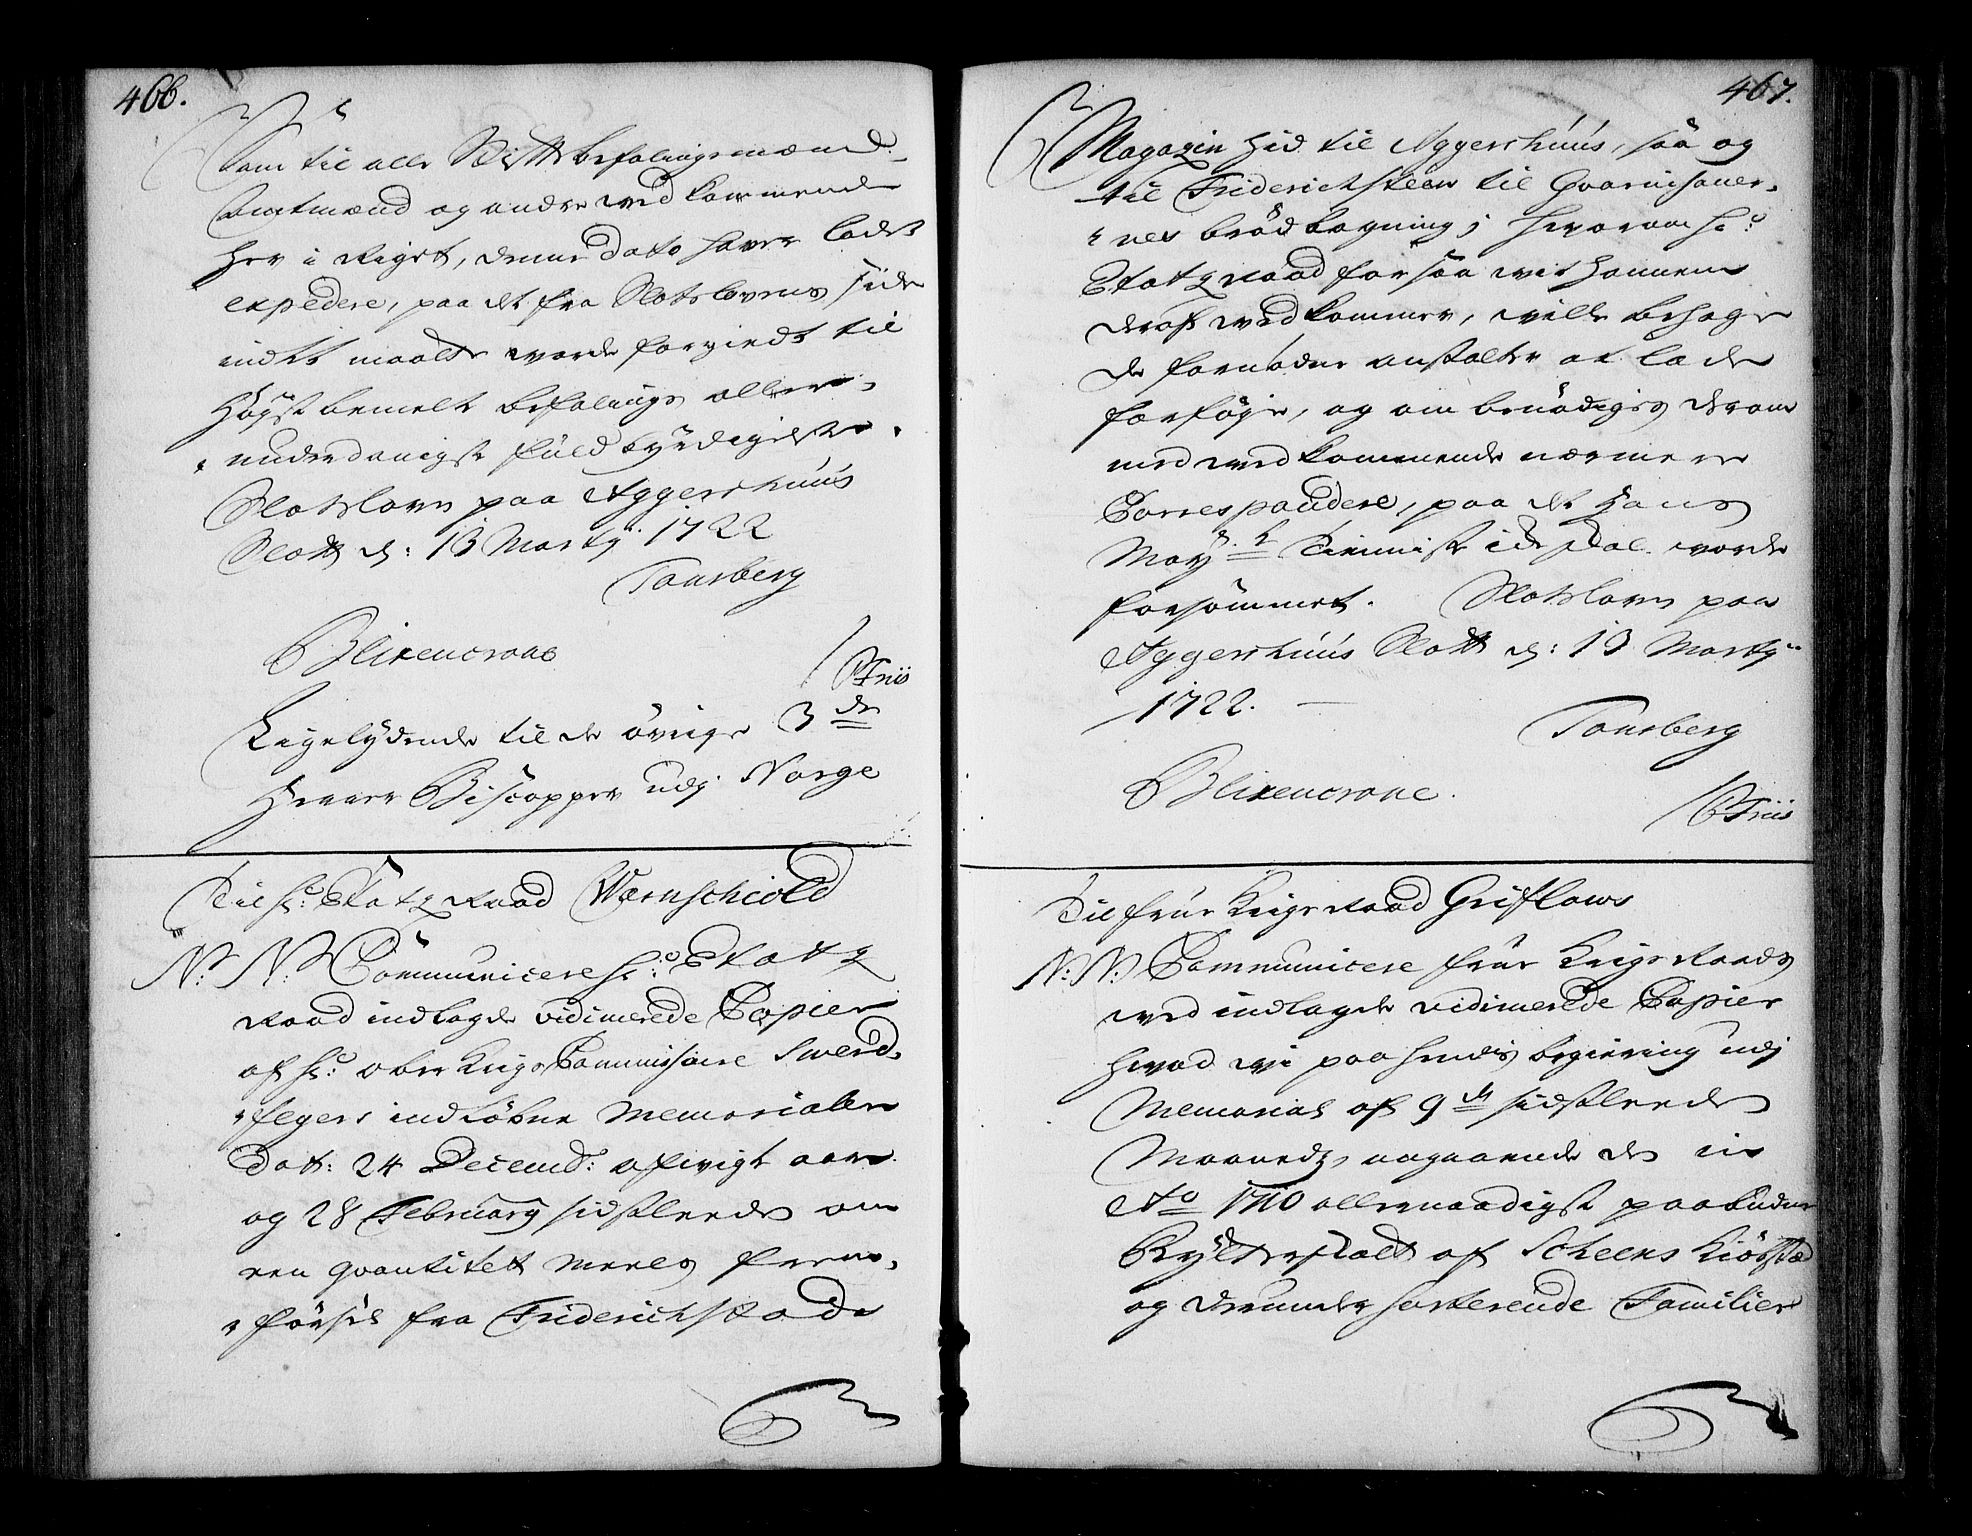 466.
Som til alle Stiftbefalingsmænd
Amtmænd og andre vedkommende
her i Riget, denne dato haver ladet
expedere, paa det fra Slotslovens side
intet maatte worde forsømt til
Høgstbemelte befalings aller-
underdanigste fuldbyrdigelse.
Slotsloven paa Aggershuus
Slott d: 13 Marty 1722
Tonsberg
Blixencrone
/ PFriis
Ligelydende til de øvrige 3de
Herrer Biscopper udj Norge
Til Hr: Etatz Raad Wernschiold
N: N: Communicere Hr: Etatz
Raad indlagde vidimerede Copier
af Hr: ober Krigs Commissaire Swerd-
fegers indkomne Memorialer
Dat: 24 Decemb: afvigt aar
og 28 February sidstleeden om
een qvantitet Meels frem-
førsel fra Friderichstads
467.
Magazin hid til Aggershuus, saa og
til Friderichsteen til Gvarnisoner-
nes brødbagning; hvorom Hr:
Etatz Raad for saa vit hannem
deraf vedkommer, ville behage
de fornødne anstalter at lade
forføje, og om benødiges derom
med vedkommende nærmere
Correspondere, paa det Hans
Mayts tienniste ide skal worde
forsømmet. Slotsloven paa
Aggershuus Slott d: 13 Marty
1722.
Tonsberg
Blixencrone.
/ PFriis
Til frue Krigs Raad Griflows
N: N: Communicere frue Krigs Raads
ved indlagde vidimerede Copier
hvad wi paa hendes begiering udj
Memorial af 9de sidstleeden
Maaned, angaaende den in
Ao 1710 allernaadigst paabudne
Kyldeskatt af Scheens Kiøbstæd
og derunder sorterende Familier